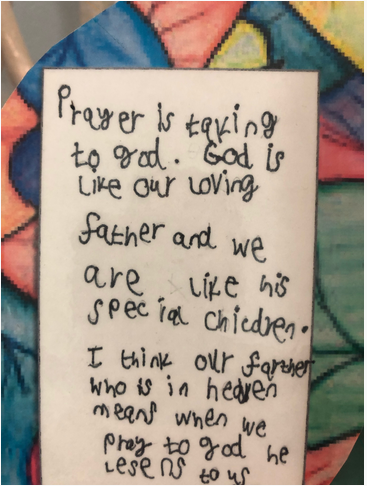 Prayer is taking
to god. God is
like our loving
father and we
are like his
special chicdren.
I think our farther
who is in heaven
means when we
pray to god he
lesens to us